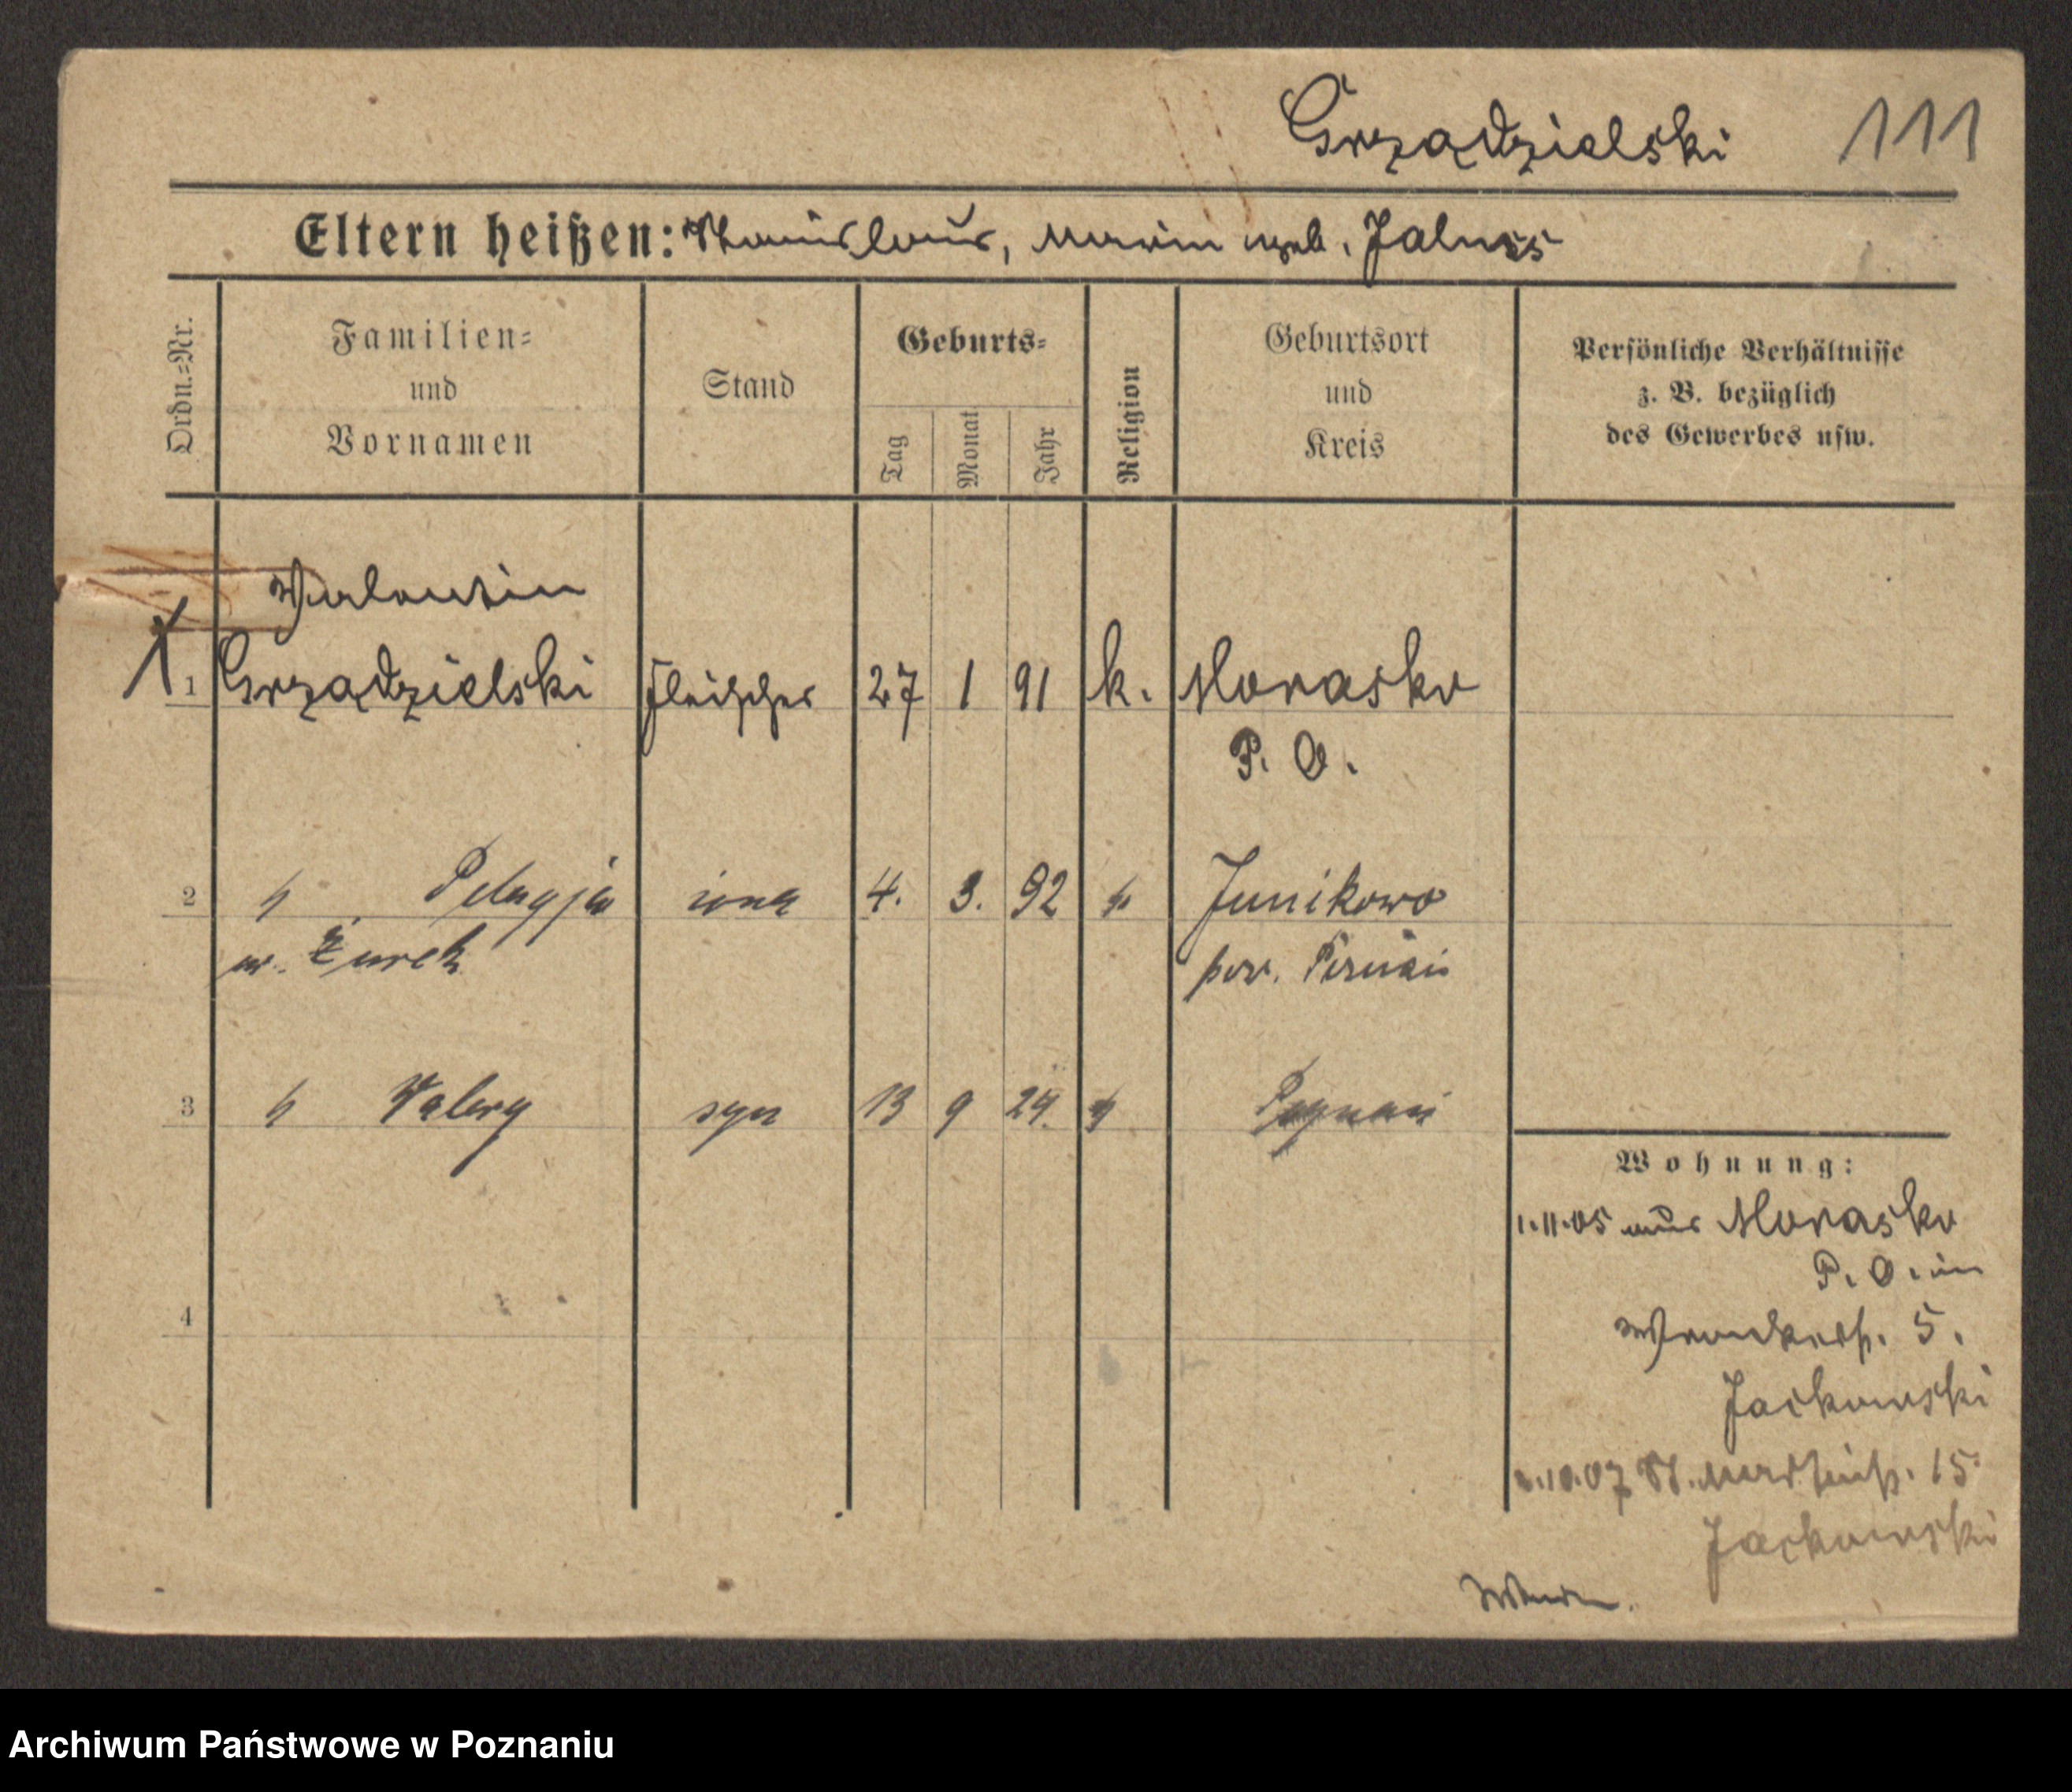 Grządzielski 111
Eltern heißen: Stanislaus, Maria geb. Jaluss
Ordn.-Nr.
Familien-
und
Vornamen
Stand
Geburts-
Tag
Monat
Jahr
Religion
Geburtsort
und
Kreis
Persönliche Verhältnisse
z. B. bezüglich
des Gewerbes usw.
Valentin
1 Grządzielski Fleischer 27 1 91 k. Morasko
P. O.
2 Pelagja żona 4. 3. 92 Junikowo
ur. Żurek pow. Poznań
3 Walery syn 13 9 24. Poznań
4
Wohnung:
1.11.05 aus Morasko
P. O. in
Wronkerstr. 5.
Jackowski
10.07 St. Martinstr. 15
Jackowski
Archiwum Państwowe w Poznaniu